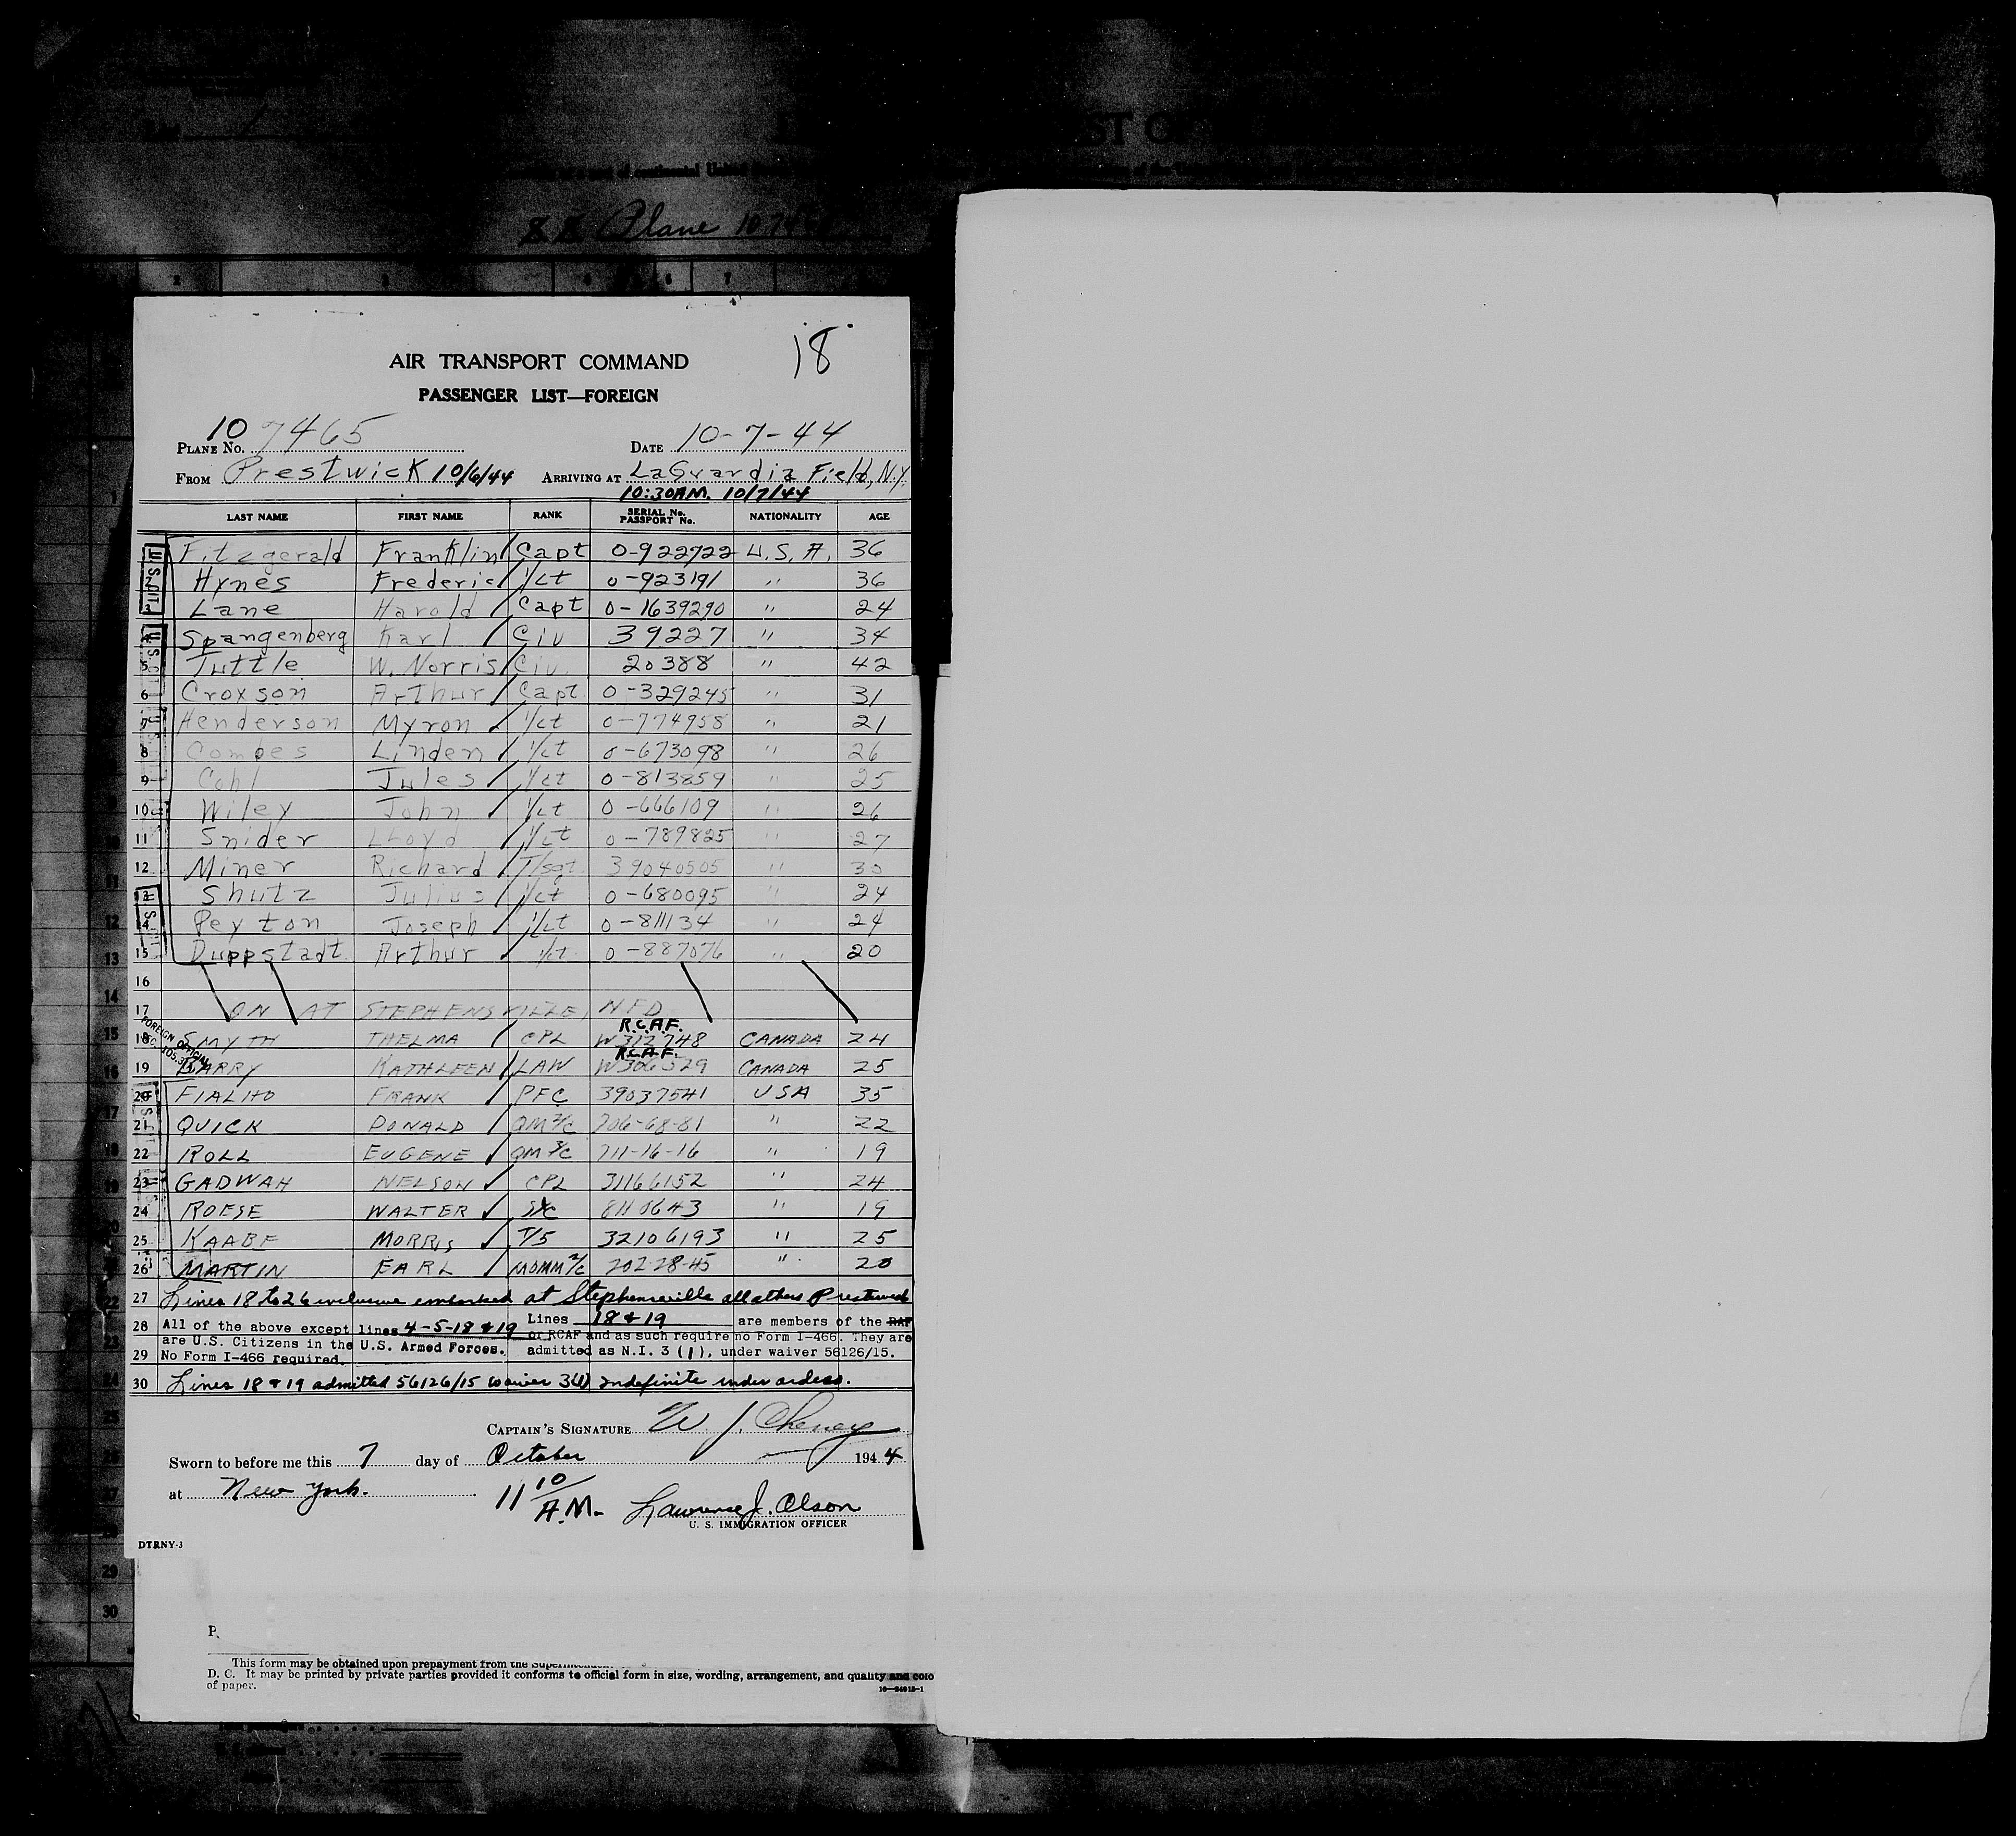 Plane 107465
18
AIR TRANSPORT COMMAND
PASSENGER LIST—FOREIGN
PLANE NO. 10 7465 DATE 10-7-44
FROM Prestwick 10/6/44 ARRIVING AT LaGuardia Field, N.Y.
10:30 A.M. 10/7/44
LAST NAME FIRST NAME RANK SERIAL No. PASSPORT No. NATIONALITY AGE
Fitzgerald Franklin Capt 0-922722 U.S.A. 36
2 Hynes Frederic 1/Lt 0-923191 " 36
3 Lane Harold Capt 0-1639290 " 24
4 Spangenberg Karl Civ 39227 " 34
5 Tuttle W. Norris Civ. 20388 " 42
6 Croxson Arthur Capt. 0-329245 " 31
7 Henderson Myron 1/Lt 0-774958 " 21
8 Combes Linden 1/Lt 0-673098 " 26
9 Cohl Jules 1/Lt 0-813859 " 25
10 Wiley John 1/Lt 0-666109 " 26
11 Snider Lloyd 1/Lt 0-789825 " 27
12 Miner Richard T/sgt. 39040505 " 30
13 Shutz Julius 1/Lt 0-680095 " 24
14 Peyton Joseph 1/Lt 0-811134 " 24
15 Duppstadt Arthur 1/Lt 0-887076 " 20
16
17 ON AT STEPHENSVILLE, NFD
FOREIGN OFFICIAL
R.C.A.F.
18 SMYTH THELMA CPL W312748 CANADA 24
R.C.A.F.
19 BARRY KATHLEEN LAW W306529 CANADA 25
20 FIALHO FRANK PFC 39037541 USA 35
21 QUICK DONALD QM 2/C 706-68-81 " 22
22 ROLL EUGENE QM 3/C 711-16-16 " 19
23 GADWAH NELSON CPL 31166152 " 24
24 ROESE WALTER S1/C 8110643 " 19
25 KAABE MORRIS T/5 32106193 " 25
26 MARTIN EARL MOMM 2/C 202-28-45 " 20
27 Lines 18 to 26 inclusive embarked at Stephensville all others Prestwick
28 All of the above except lines 4-5-18 & 19 Lines 18 & 19 are members of the RAF
are U.S. Citizens in the U.S. Armed Forces. or RCAF and as such require no Form I-466. They are
29 No Form I-466 required. admitted as N.I. 3 (1), under waiver 56126/15.
30 Lines 18 & 19 admitted 56126/15 waiver 3(1) indefinite under orders.
CAPTAIN'S SIGNATURE W. J. Cheney
Sworn to before me this 7 day of October 1944
at New York. 11 10/ A.M. Lawrence J. Olson
U. S. IMMIGRATION OFFICER
DTRNY-3
P.
This form may be obtained upon prepayment from the
D. C. It may be printed by private parties provided it conforms to official form in size, wording, arrangement, and quality and colo
of paper.
16—24915-1